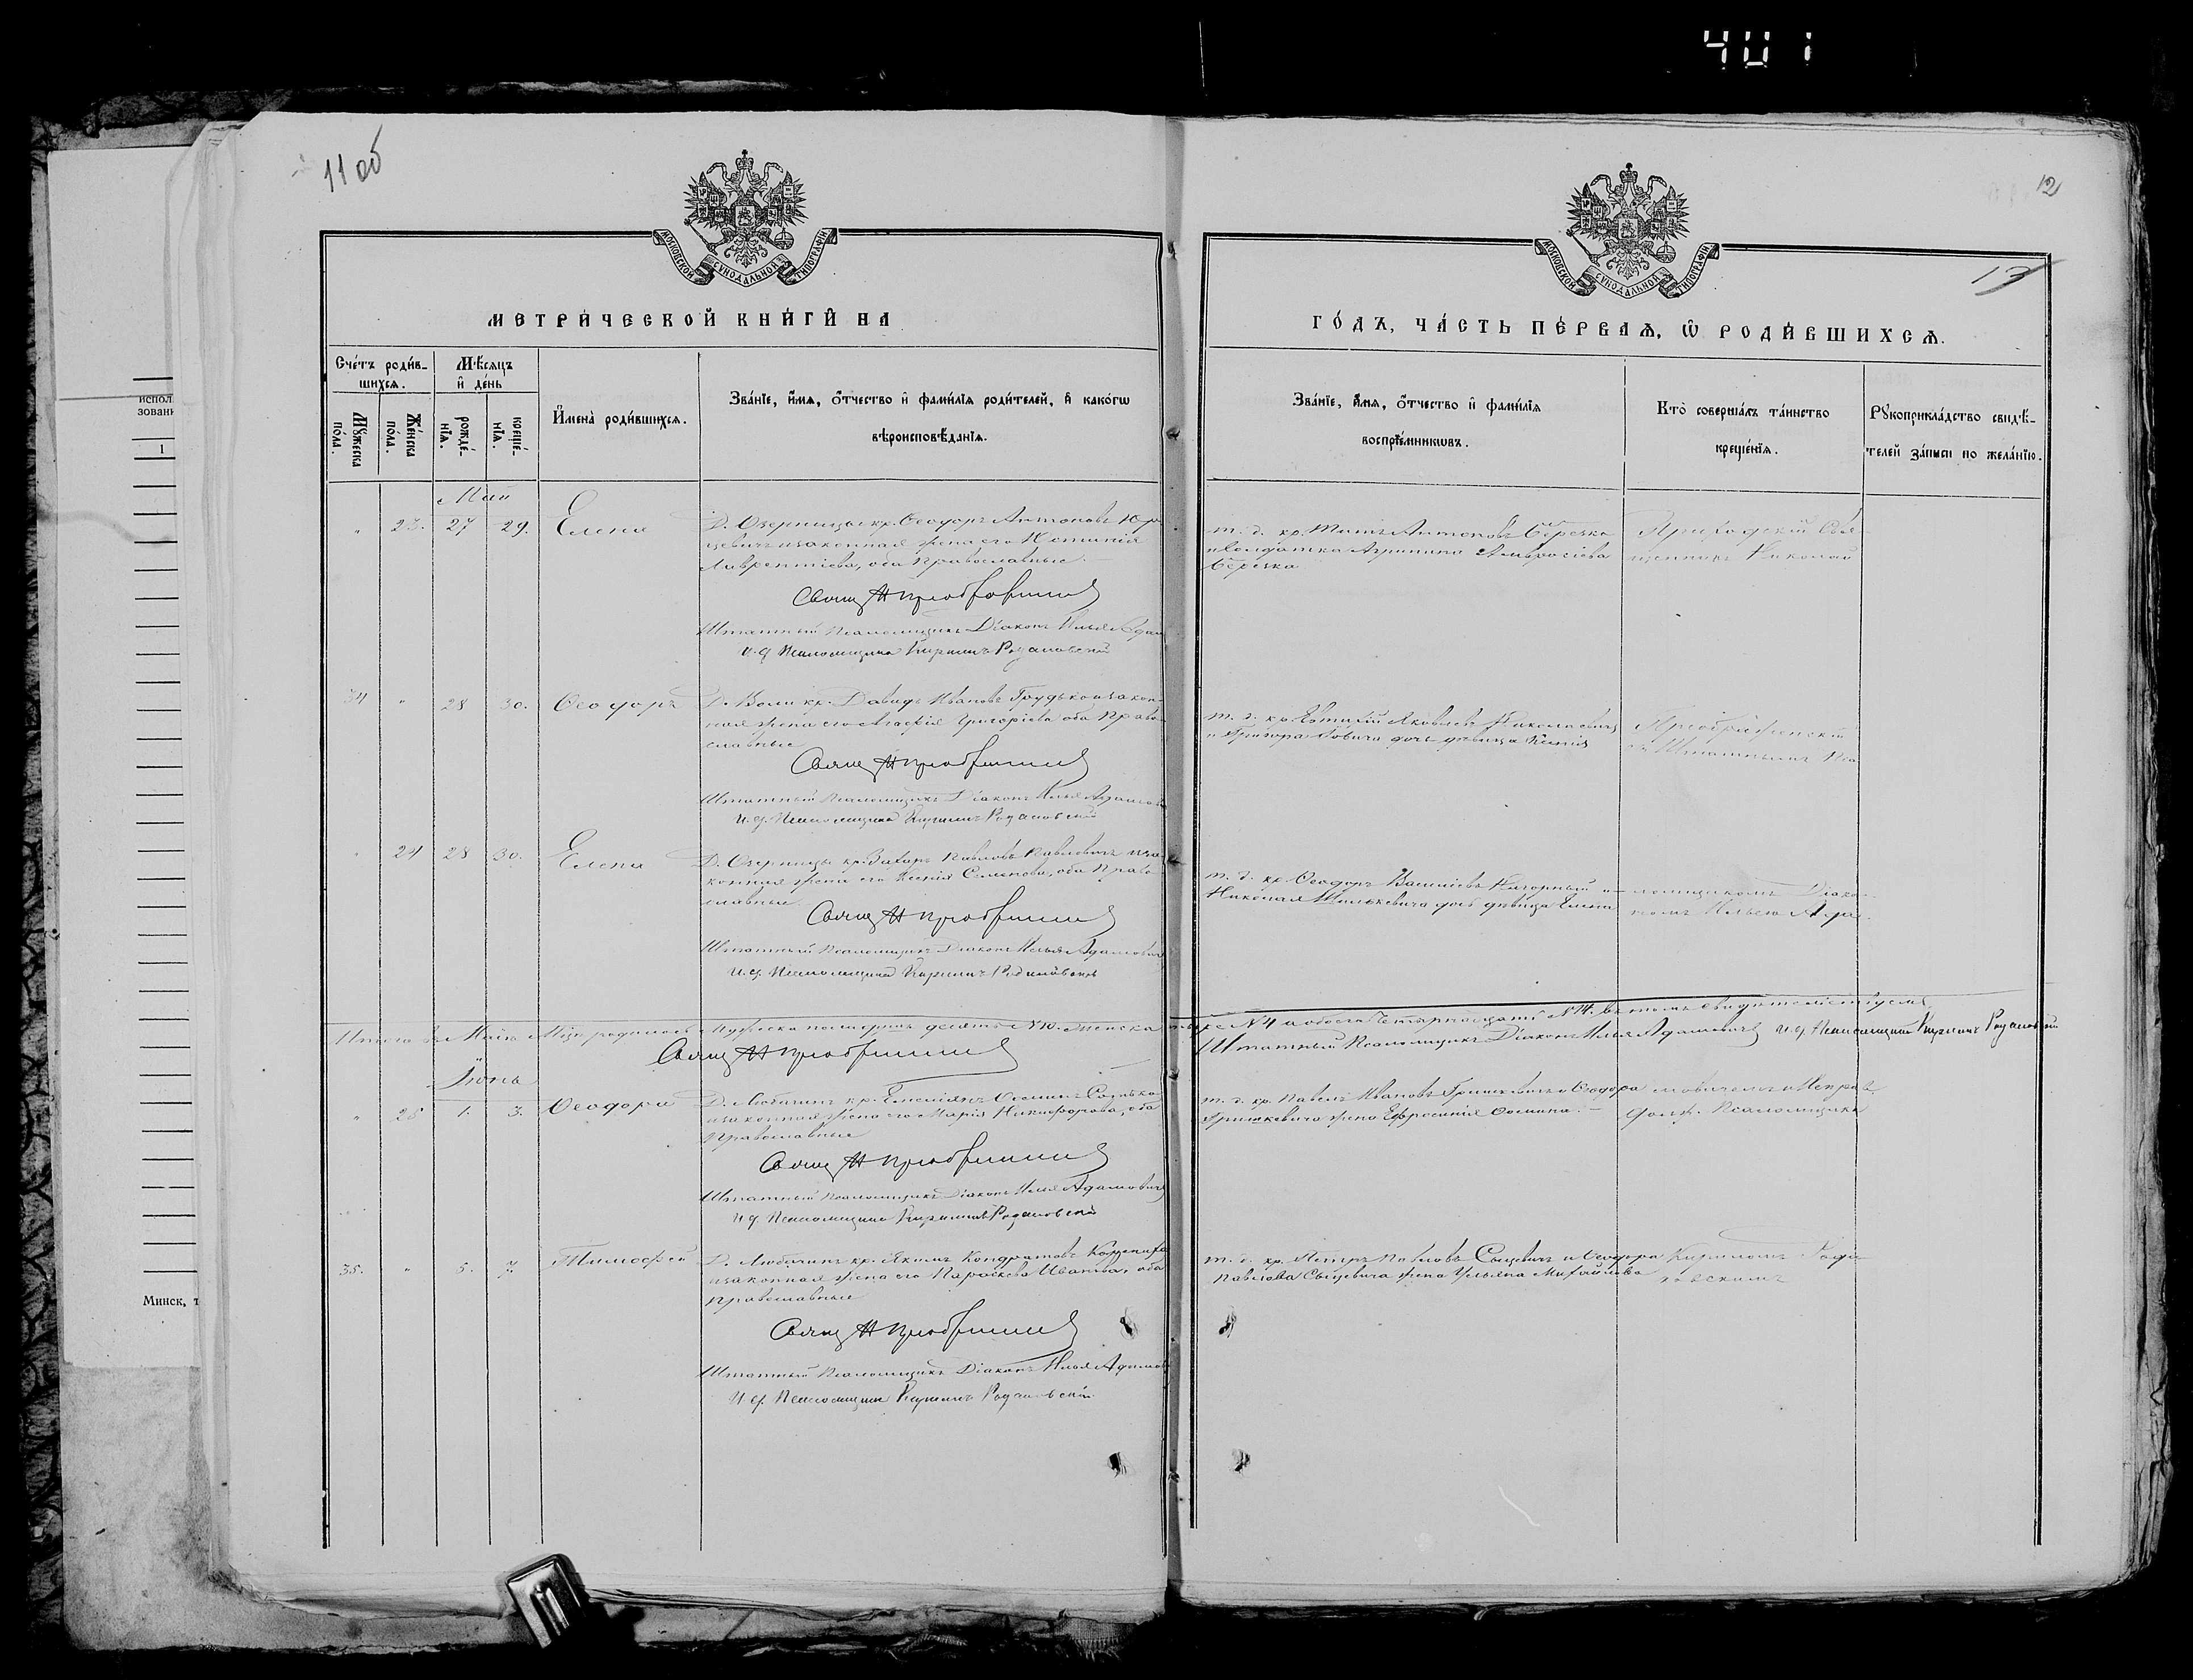 401
11 об
12
13
МОСКОВСКОЙ СѴНОДАЛЬНОЙ ТИПОГРАФІИ
МОСКОВСКОЙ СѴНОДАЛЬНОЙ ТИПОГРАФІИ
МЕТРИ́ЧЕСКОЙ КНИ́ГИ НА
ГО́ДЪ, ЧА́СТЬ ПЕ́РВАѦ, Ѡ РОДИ́ВШИХСѦ.
Сче́тъ роди́в-
шихсѧ.
Мꙋ́жеска по́ла.
Же́нска по́ла.
Мѣ́сѧцъ
и де́нь
рожде́-
нїѧ.
креще́-
нїѧ.
И҆мена̀ роди́вшихсѧ.
Зва́нїе, и҆́мѧ, ѻ҆́тчество и҆ фами́лїѧ роди́телей, и҆ како́гѡ
вѣроисповѣ́данїѧ.
Зва́нїе, и҆́мѧ, ѻ҆́тчество и҆ фами́лїѧ
воспрїе́мникѡвъ.
Кто̀ соверша́лъ та́инство
креще́нїѧ.
Рꙋкоприкла́дство свидѣ́-
телей за́писи по жела́нїю.
испол
зовани
1
Минск, т
Май
" 23. 27 29. Елена
Д. Озерницы кр. Ѳеодоръ Антоновъ
и законная жена его Устинія
Лаврентіева, оба Православные.
Свящ Н Преображенскій
Штатный Псаломщикъ Діаконъ Илья Адам
И. д. Псаломщика Кириллъ
т. д. кр. Антоновъ Березка
и Солдатка Агрипина Амвросіева
Березка
Приходскій Свя
щенникъ Николай
34 " 28 30. Ѳеодоръ
Д. Воли кр. Давидъ Ивановъ Грудько и закон
ная жена его Григоріева оба Право
славные
Свящ Н Преображенскій
Штатный Псаломщикъ Діаконъ Илья Адамов
И. д. Псаломщика Кириллъ
т. д. кр. Евтихій Яковлевъ
дочь дѣвица Ксенія
Преображенскій
съ Штатнымъ Пса
" 24 28 30. Елена
Д. Озерницы кр. Захаръ Павловъ Павлевичъ и за
конная жена его Ксенія Семенова, оба Право
славные.
Свящ Н Преображенскій
Штатный Псаломщикъ Діаконъ Илья Адамович
И. д. Псаломщика Кириллъ
т. д. кр. Ѳеодоръ Васильевъ Нагорный и
Николая Шилькевича дочь дѣвица Елена
ломщикомъ Діако
номъ Ильею Ада
Итого въ Маѣ М-цѣ родилось Мужеска пола десять №10. Женска четыре №4 а обоего четырнадцать №14. Въ томъ свидѣтельствуемъ
Свящ Н Преображенскій
Штатный Псаломщикъ Діаконъ Илья Адамовичъ И д Псаломщика Кириллъ
Іюнь
" 25 1. 3. Ѳеодора
Д. Любачинъ кр. Емеліянъ
и законная жена его Марія Никифорова, оба
Православные
Свящ Н Преображенскій
Штатный Псаломщикъ Діаконъ Илья Адамович
И д. Псаломщика Кириллъ
т. д. кр. Павелъ Ивановъ Гришкевичъ и Ѳеодора
Гришкевича жена Ефросинія Ѳомина.
мовичемъ и Исправ.
долж. Псаломщика
35. " 5. 7. Тимоѳей
Д. Любачинъ кр. Якимъ Кондратовъ
и законная жена его Параскева Иванова, оба
православные
Свящ Н Преображенскій
Штатный Псаломщикъ Діаконъ Илья Адамов
И. д. Псаломщика Кириллъ
т. д. кр. Петръ Павловъ Сыцевичъ и Ѳеодора
Павлова Сыцевича жена Ульяна Михайлова
Кирилломъ